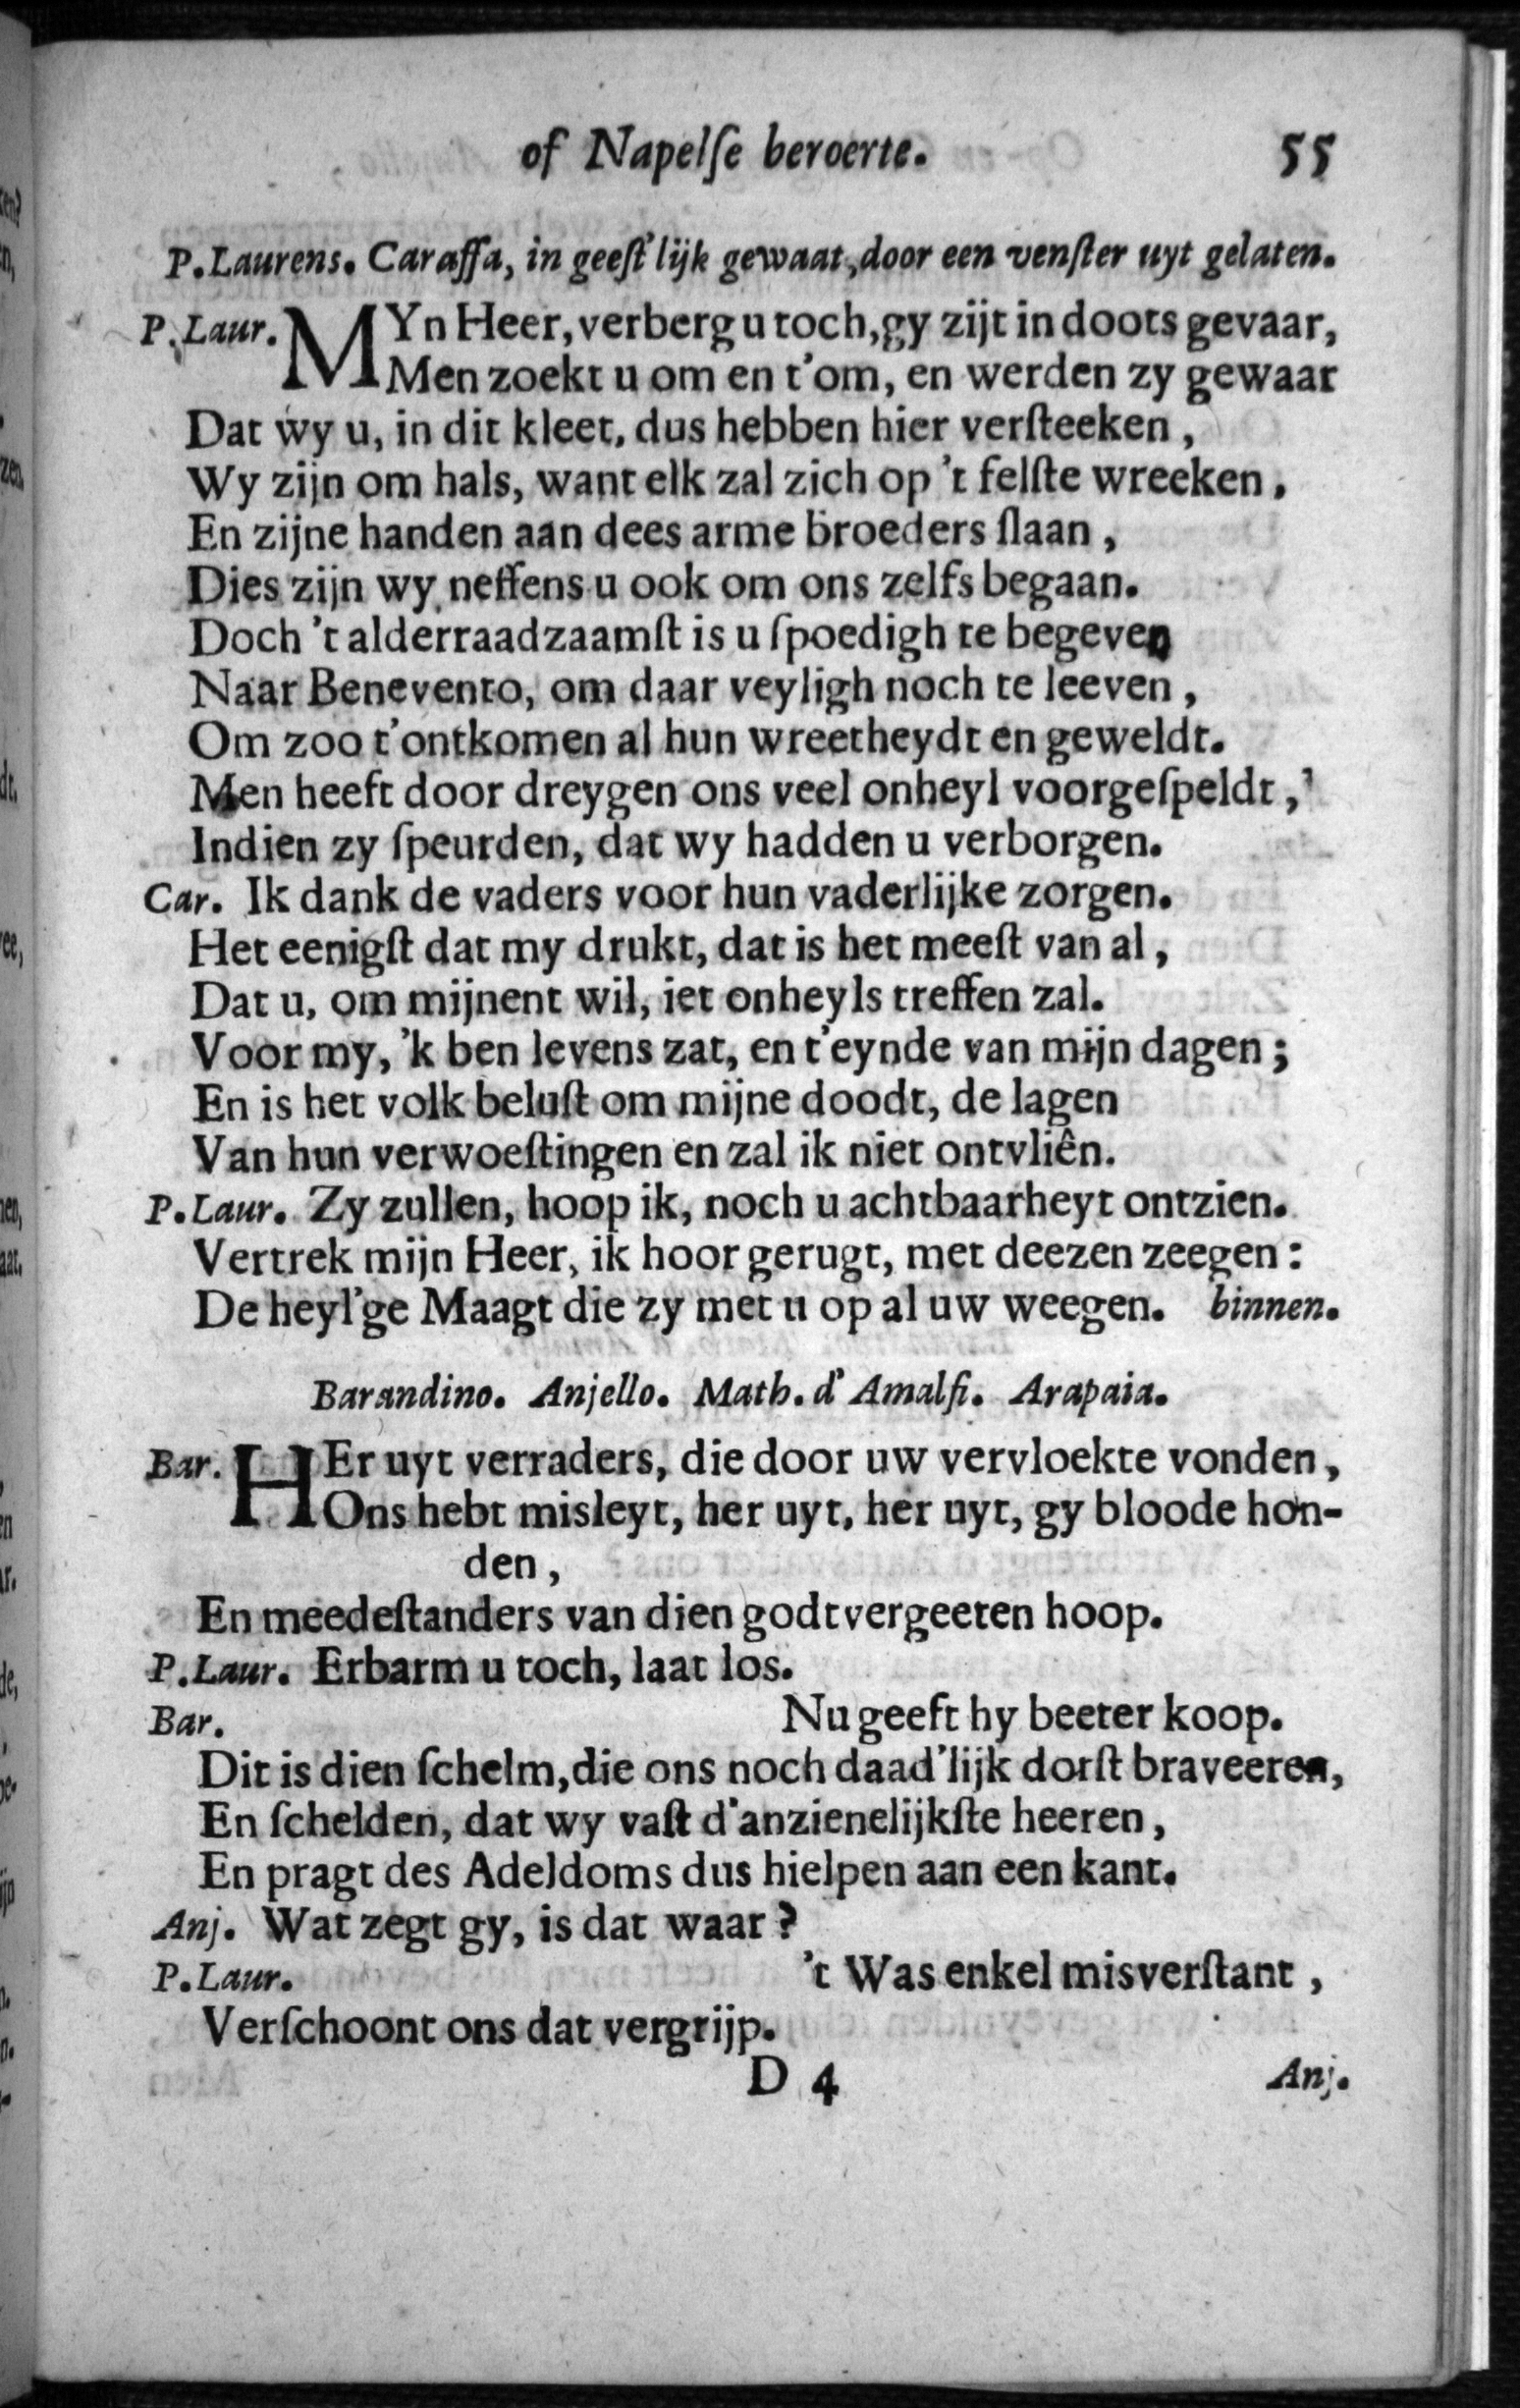 of Napelſe beroerte. 55
P. Laurens. Caraffa, in geeſt'lijk gewaat, door een venſter uyt gelaten.
P. Laur. MYn Heer, verberg u toch, gy zijt in doots gevaar,
Men zoekt u om en t'om, en werden zy gewaar
Dat wy u, in dit kleet, dus hebben hier verſteeken,
Wy zijn om hals, want elk zal zich op 't felſte wreeken,
En zijne handen aan dees arme broeders ſlaan,
Dies zijn wy neffens u ook om ons zelfs begaan.
Doch 't alderraadzaamſt is u ſpoedigh te begeven
Naar Benevento, om daar veyligh noch te leeven,
Om zoo t'ontkomen al hun wreetheydt en geweldt.
Men heeft door dreygen ons veel onheyl voorgeſpeldt,
Indien zy ſpeurden, dat wy hadden u verborgen.
Car. Ik dank de vaders voor hun vaderlijke zorgen.
Het eenigſt dat my drukt, dat is het meeſt van al,
Dat u, om mijnent wil, iet onheyls treffen zal.
Voor my, 'k ben levens zat, en t'eynde van mijn dagen;
En is het volk beluſt om mijne doodt, de lagen
Van hun verwoeſtingen en zal ik niet ontvliên.
P. Laur. Zy zullen, hoop ik, noch u achtbaarheyt ontzien.
Vertrek mijn Heer, ik hoor gerugt, met deezen zeegen:
De heyl'ge Maagt die zy met u op al uw weegen. binnen.
Barandino. Anjello. Math. d'Amalfi. Arapaia.
Bar. HEr uyt verraders, die door uw vervloekte vonden,
Ons hebt misleyt, her uyt, her uyt, gy bloode hon-
den,
En meedeſtanders van dien godtvergeeten hoop.
P. Laur. Erbarm u toch, laat los.
Bar. Nu geeft hy beeter koop.
Dit is dien ſchelm, die ons noch daad'lijk dorſt braveeren,
En ſchelden, dat wy vaſt d'anzienelijkſte heeren,
En pragt des Adeldoms dus hielpen aan een kant.
Anj. Wat zegt gy, is dat waar?
P. Laur. 't Was enkel misverſtant,
Verſchoont ons dat vergrijp.
D 4 Anj.